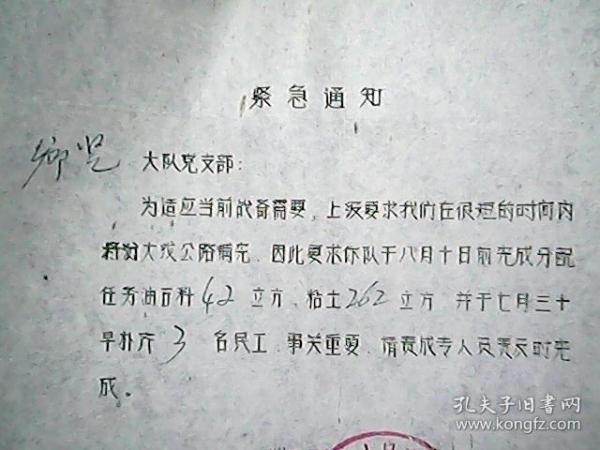 紧急通知
大队党支部:
为适应当前战备需要,上级要求我们在很短的时间内
大 公路 完 因此要求你队于八月十日前完成分配
任务油石料42立方、粘土262立方 并于七月三十
早补齐3名民工、事关重要、请责成专人负责及时完
成。
孔夫子旧书网
www.kongfz.com